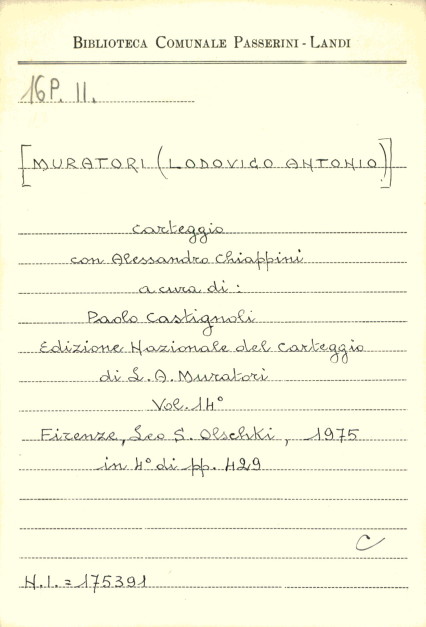 BIBLIOTECA COMUNALE PASSERINI - LANDI
16P. II.
[MURATORI (LODOVICO ANTONIO)]
Carteggio
con Alessandro Chiappini
a cura di :
Paolo Castignoli
Edizione Nazionale del Carteggio
di L. A. Muratori
Vol. 14°
Firenze, Leo S. Olschki, 1975
in 4° di pp. 429
C
N.I. = 175391